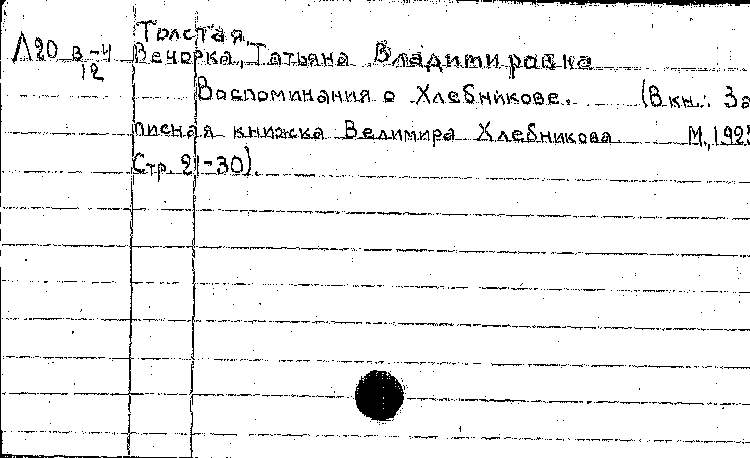 Толстая.
Л20 в-4 Вечорка, Татьяна Владимировна
12
Воспоминания о Хлебникове. (В кн.: За
писная книжка Велимира Хлебникова М., 1925
Стр. 21-30).